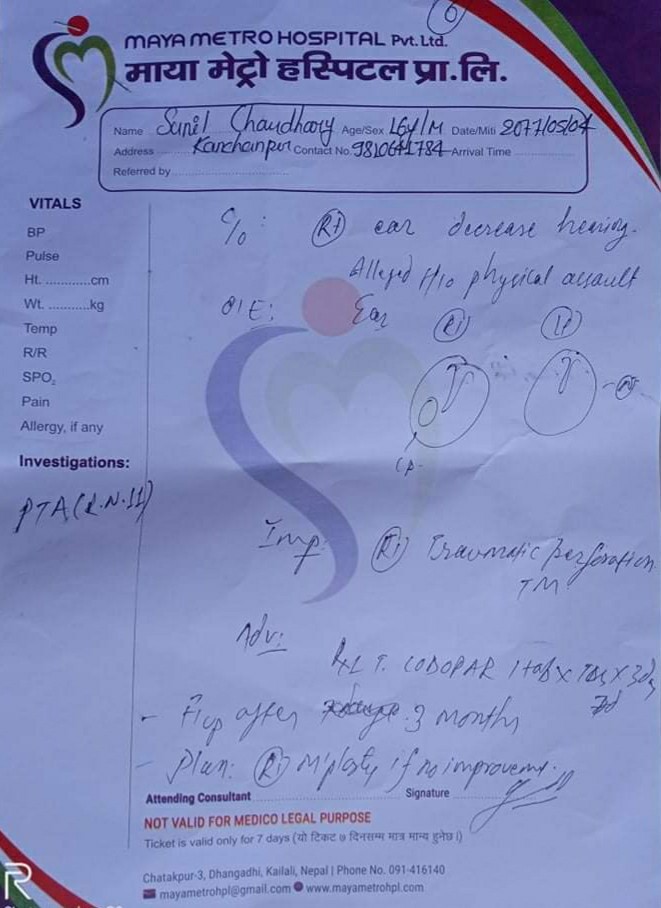 6
MAYA METRO HOSPITAL Pvt. Ltd.
माया मेट्रो हस्पिटल प्रा.लि.
Name Sunil Chaudhary Age/Sex 16Y/M Date/Miti 2077/05/04
Address Kanchanpur Contact No. Arrival Time
Referred by
VITALS
BP
Pulse
Ht. ............cm
Wt. ...........kg
Temp
R/R
SPO₂
Pain
Allergy, if any
Investigations:
PTA (R.N.11)
C/o: (Rt) ear decrease hearing.
Alleged H/o physical assault
O/E: Ear (Rt) (Lt)
Imp: (Rt) Traumatic perforation
TM
Adv:
T. CODOPAR 1 tab x TDS x 3d
- F/up after 3 months
- Plan: (Rt) M'plasty if no improvement.
Attending Consultant Signature
NOT VALID FOR MEDICO LEGAL PURPOSE
Ticket is valid only for 7 days (यो टिकट ७ दिनसम्म मात्र मान्य हुनेछ ।)
Chatakpur-3, Dhangadhi, Kailali, Nepal | Phone No. 091-416140
mayametrohpl@gmail.com www.mayametrohpl.com
R